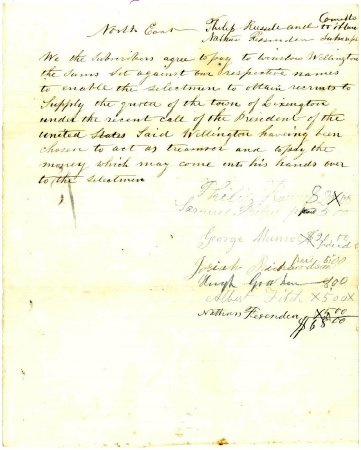 North East Philip Russell and Committee
Nathan Fessenden to obtain
We the Subscribers agree to pay to Winslow Wellington
the Sums Set against our respective names
to enable the selectmen to obtain recruits to
Supply the quota of the town of Lexington
under the recent call of the President of the
United States Said Wellington having been
chosen to act as treasurer and to pay the
money which may come into his hands over
to the selectmen
Philip
Samuel paid 5.00
George Munroe
Josiah Richardson paid 5.00
Hugh Graham 8.00
Albert Fitch X5.00X
Nathan Fessenden X5.00
$68.00